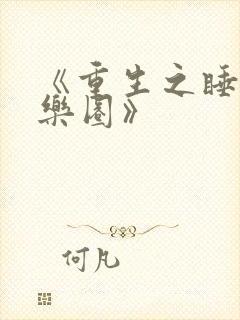 《重生之睡
樂園》
何凡